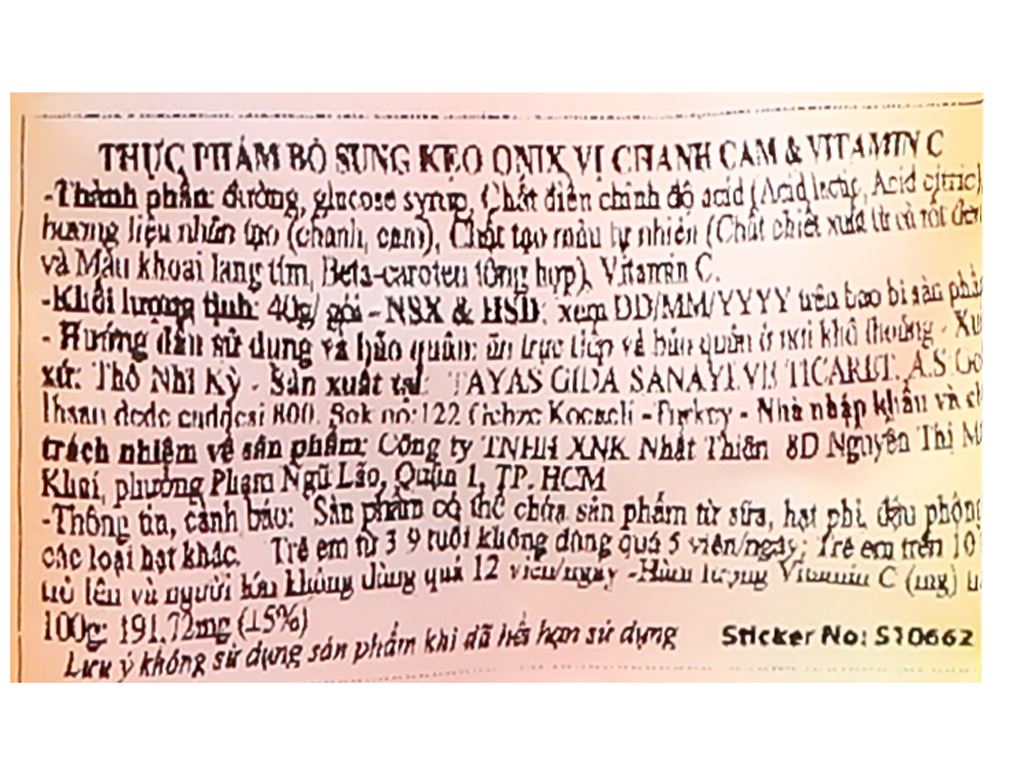 THỰC PHẨM BỔ SUNG KẸO ONIX VỊ CHANH CAM & VITAMIN C
-Thành phần: đường, glucose syrup, Chất điều chỉnh độ acid (Acid lactic, Acid citric),
hương liệu nhân tạo (chanh, cam), Chất tạo màu tự nhiên (Chất chiết xuất từ cà rốt đen
và Màu khoai lang tím, Beta-caroten tổng hợp), Vitamin C.
-Khối lượng tịnh: 40g/ gói - NSX & HSD: xem DD/MM/YYYY trên bao bì sản phẩ
- Hướng dẫn sử dụng và bảo quản: ăn trực tiếp và bảo quản ở nơi khô thoáng - Xu
xứ: Thổ Nhĩ Kỳ - Sản xuất tại: TAYAS GIDA SANAYI VE TICARET. A.S
Ihsan dede caddesi 800. Sok no:122 Gebze Kocaeli -Turkey - Nhà nhập khẩu và
trách nhiệm về sản phẩm: Công ty TNHH XNK Nhất Thiên 8D Nguyễn Thị M
Khai, phường Phạm Ngũ Lão, Quận 1, TP. HCM
-Thông tin, cảnh báo: Sản phẩm có thể chứa sản phẩm từ sữa, hạt phỉ, đậu phộng
các loại hạt khác. Trẻ em từ 3 9 tuổi không dùng quá 5 viên/ngày; Trẻ em trên 10
trở lên và người lớn không dùng quá 12 viên/ngày -Hàm lượng Vitamin C (mg)
100g: 191,72mg (±5%)
Lưu ý không sử dụng sản phẩm khi đã hết hạn sử dụng Sticker No: S10662